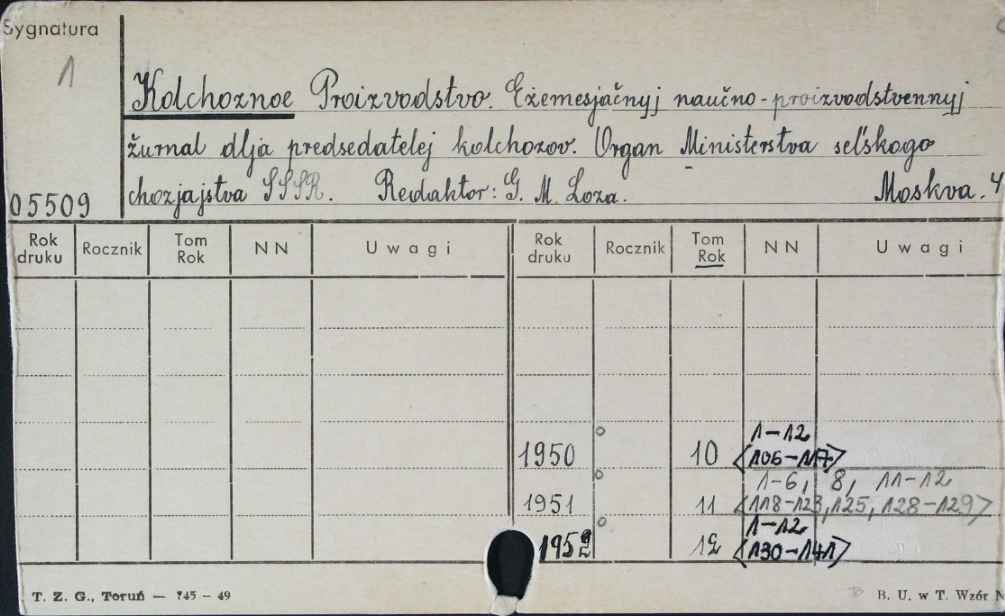 Sygnatura
1
Kolchoznoe Proizvodstvo. Eżemesjačnyj naučno-proizvodstvennyj
żurnal dlja predsedatelej kolchozov. Organ Ministerstva sel'skogo
05509 chozjajstva SSSR. Redaktor: G. M. Loza. Moskva. 4
Rok druku Rocznik Tom Rok NN Uwagi Rok druku Rocznik Tom Rok NN Uwagi
1-12
1950 10 <106-117>
1-6, 8, 11-12
1951 11 <118-123, 125, 128-129>
1-12
1952 12 <130-141>
T. Z. G., Toruń — 745 - 49 B. U. w T. Wzór